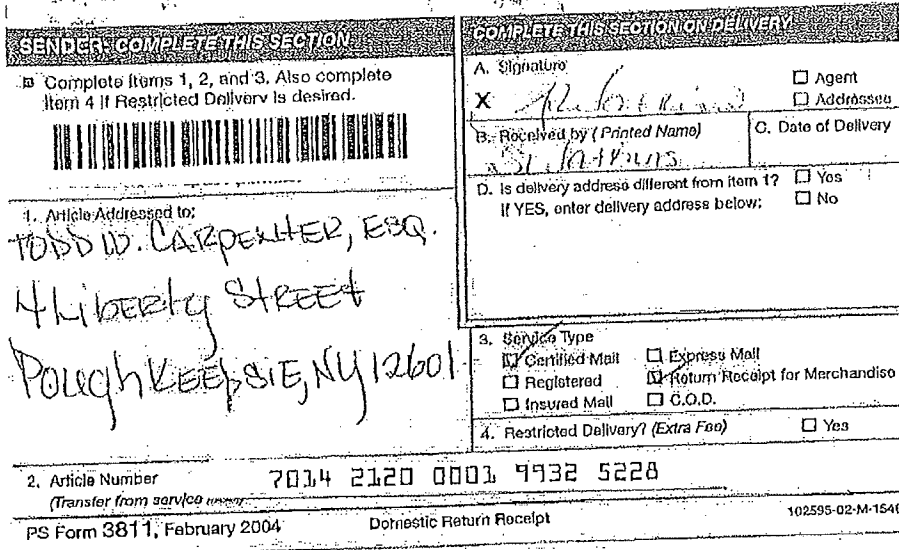 SENDER: COMPLETE THIS SECTION
Complete items 1, 2, and 3. Also complete
item 4 if Restricted Delivery is desired.
1. Article Addressed to:
TODD W. CARPENTER, ESQ.
4 Liberty STREET
PoughKEEPSIE, NY 12601
COMPLETE THIS SECTION ON DELIVERY
A. Signature
X
Agent
Addressee
B. Received by (Printed Name)
C. Date of Delivery
D. Is delivery address different from item 1? Yes
If YES, enter delivery address below: No
3. Service Type
Certified Mail Express Mail
Registered Return Receipt for Merchandise
Insured Mail C.O.D.
4. Restricted Delivery? (Extra Fee) Yes
2. Article Number 7014 2120 0001 9932 5228
(Transfer from service
PS Form 3811, February 2004 Domestic Return Receipt 102595-02-M-1540